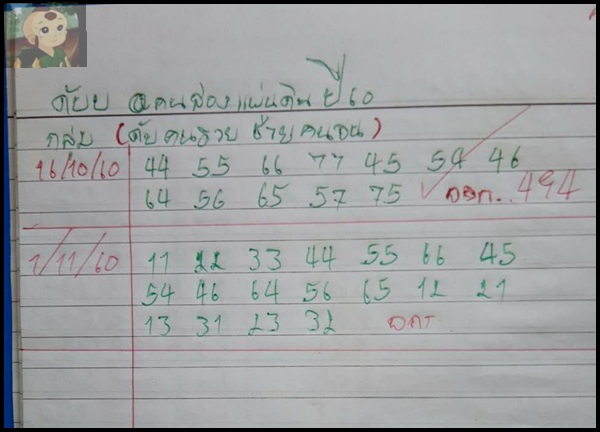 คนสองแผ่นดิน ปี 60
(ดับคนรวย ช้ายคนจน)
16/10/60 44 55 66 77 45 54 46
64 56 65 57 75 ออก.. 494
1/11/60 11 22 33 44 55 66 45
54 46 64 56 65 12 21
13 31 23 32